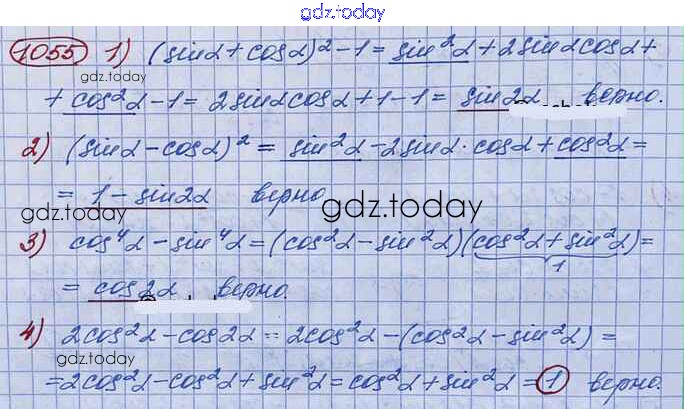 gdz.today
1055 1) (sinα + cosα)² - 1 = sin²α + 2sinαcosα +
gdz.today
+ cos²α - 1 = 2sinαcosα + 1 - 1 = sin2α верно.
2) (sinα - cosα)² = sin²α - 2sinα · cosα + cos²α =
= 1 - sin2α верно
gdz.today gdz.today
3) cos⁴α - sin⁴α = (cos²α - sin²α)(cos²α + sin²α) =
1
= cos2α верно.
4) 2cos²α - cos2α = 2cos²α - (cos²α - sin²α) =
gdz.today
= 2cos²α - cos²α + sin²α = cos²α + sin²α = 1 верно.